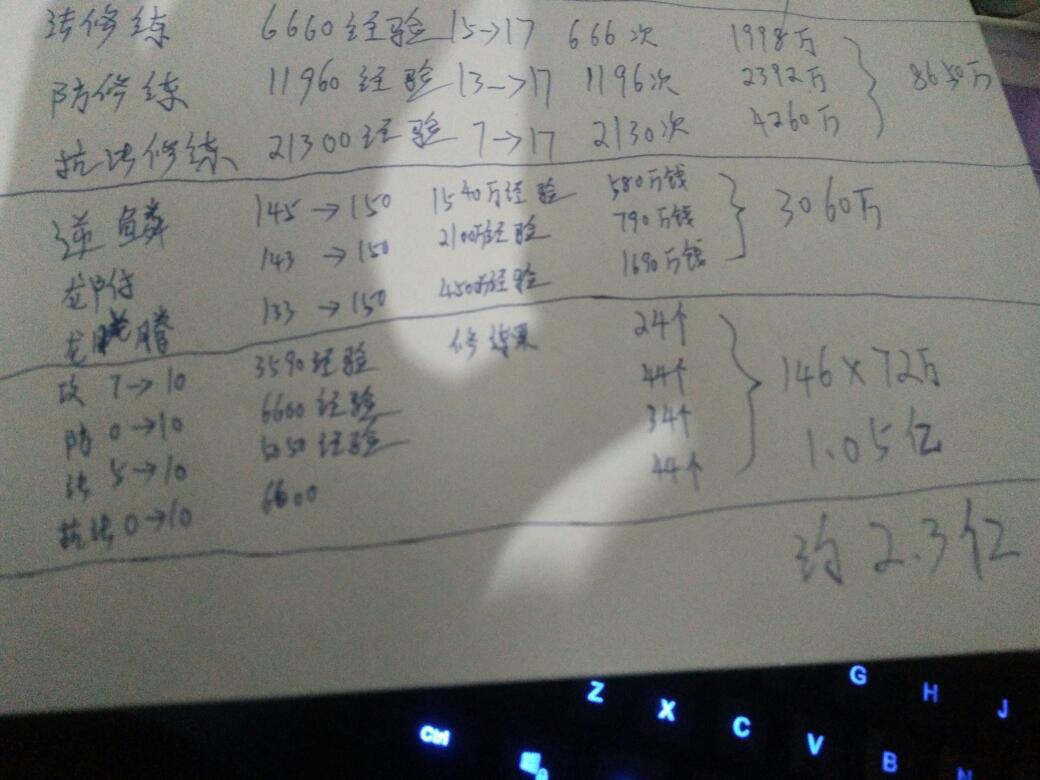 法修练 6660经验 15→17 666次 1998万
防修练 11960经验 13→17 1196次 2392万 8650万
抗法修练 21300经验 7→17 2130次 4260万
逆鳞 145→150 1540万经验 580万钱
143→150 2100万经验 790万钱 3060万
龙腾 133→150 4500万经验 1690万钱
攻 7→10 3590经验 修练果 24个
防 0→10 6600经验 44个 146×72万
法 5→10 5050经验 34个 1.05亿
抗法 0→10 6600 44个
约2.3亿
Ctrl Z X C V B N G H J